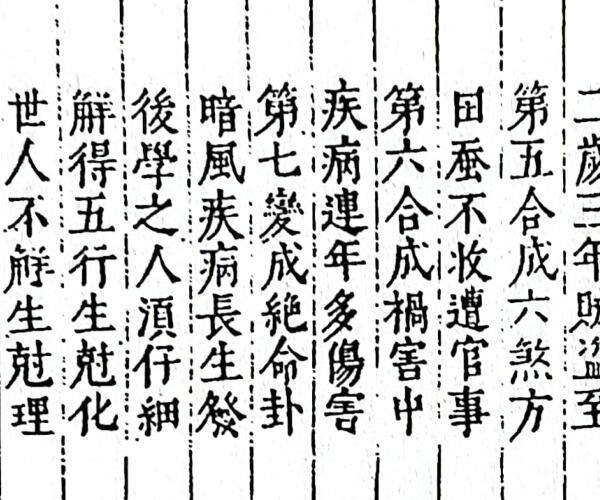 二歲三年賊盜至
第五合成六煞方
田蚕不收遭官事
第六合成禍害中
疾病連年多傷害
第七變成絕命卦
暗風疾病長生發
後學之人須仔細
解得五行生尅化
世人不解生尅理